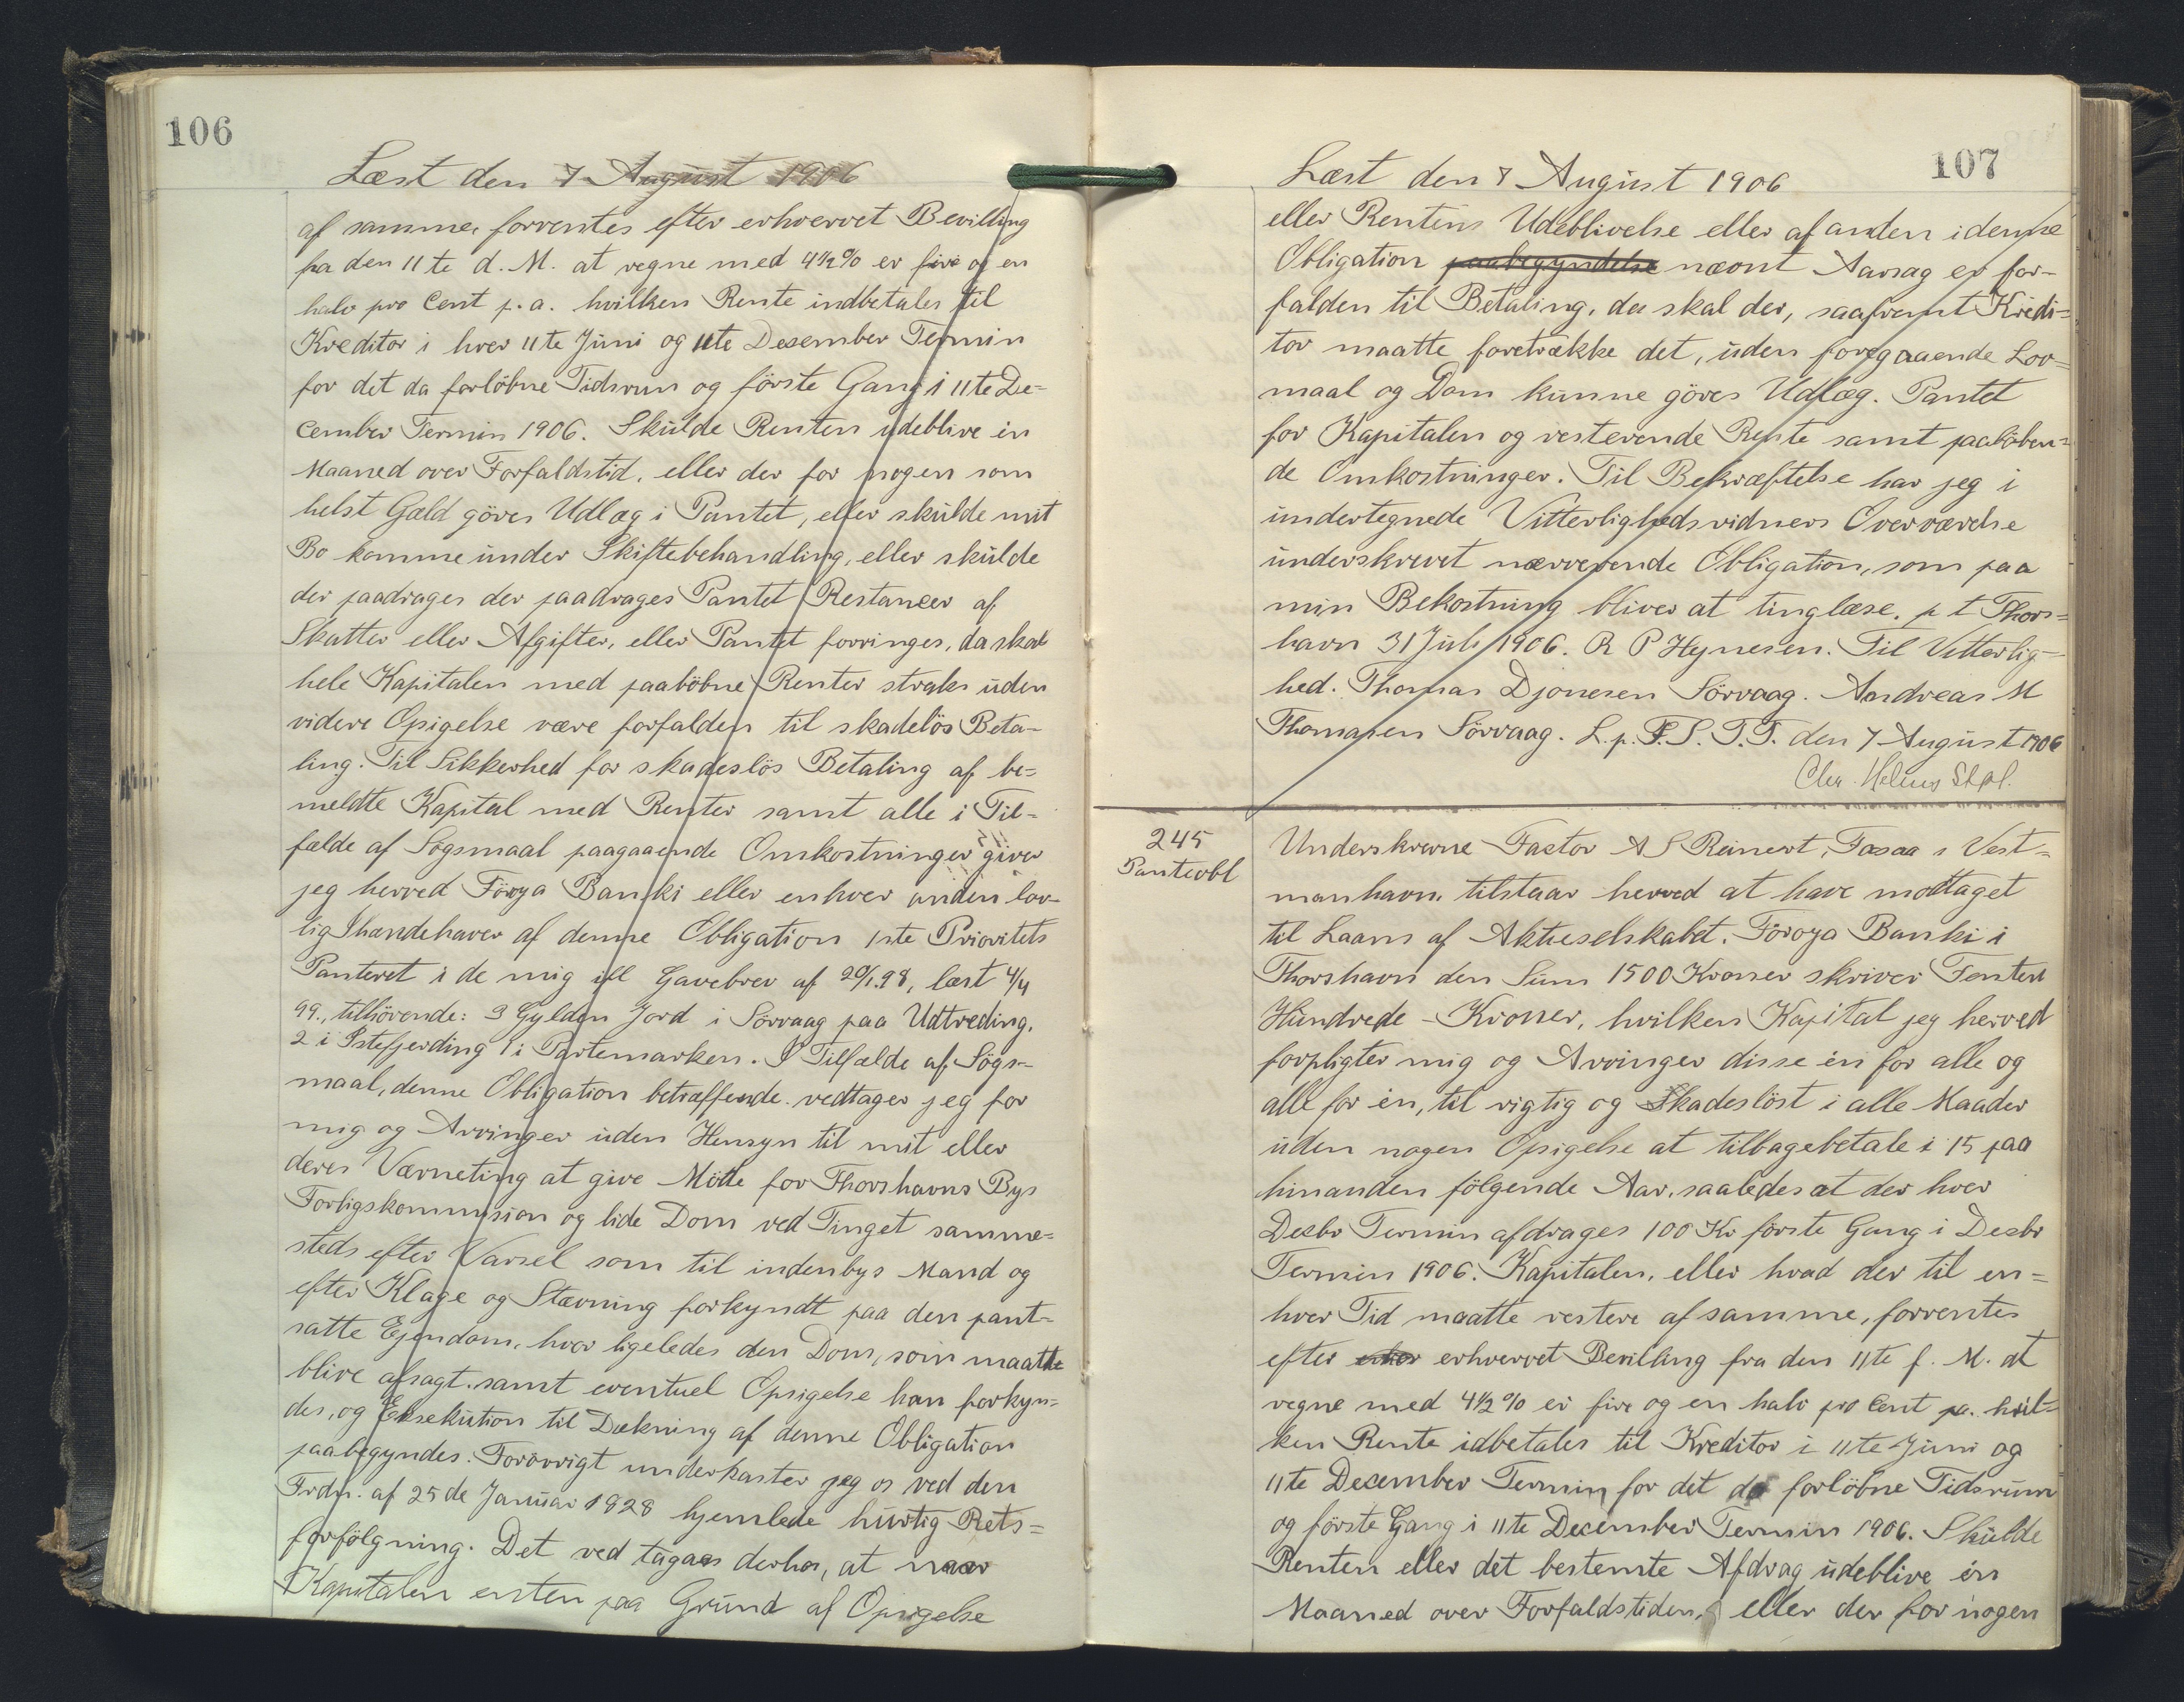 106
Læst den 7 August 1906
af samme, forrentes efter erhvervet Bevilling
fra den 11te d. M. at regne med 4½% er fire og en
halv pro Cent p. a. hvilken Rente indbetales til
Kreditor i hver 11te Juni og 11te Desember Termin
for det da forlöbne Tidsrum og förste Gang i 11te De-
cember Termin 1906. Skulde Renten udeblive én
Maaned over Forfaldstid, eller der for nogen som
helst Gæld göres Udlæg i Pantet, eller skulde mit
Bo komme under Skiftebehandling, eller skulde
der paadrages der paadrages Pantet Restancer af
Skatter eller Afgifter, eller Pantet forringes, da skal
hele Kapitalen med paaböbne Renter straks uden
videre Opsigelse være forfalden til skadelös Beta-
ling. Til Sikkerhed for skadeslös Betaling af be-
meldte Kapital med Renter samt alle i Til-
fælde af Sögsmaal paagaaende Omkostninger giver
jeg herved Föroya Banki eller enhver anden lov-
lig Ihændehaver af denne Obligation 1ste Prioritets
Panteret i de mig ifl Gavebrev af 20/1.98, læst 4/4
99., tilhörende: 3 Gylden Jord i Sörvaag paa Udtreding,
2 i Istefjerding 1 i Partemarken. I Tilfælde af Sögs-
maal, denne Obligation betræffende vedtager jeg for
mig og Arvinger uden Hensyn til mit eller
deres Værneting at give Möde for Thorshavns Bys
Forligskommission og lide Dom ved Tinget samme-
steds efter Varsel som til indenbys Mand og
efter Klage og Stævning forkyndt paa den pant-
satte Ejendom, hvor ligeledes den Dom, som maatte
blive afsagt, samt eventuel Opsigelse kan forkyn-
des, og Eksekution til Dækning af denne Obligation
paabegyndes. Forövrigt underkaster jeg os ved den
Frdn. af 25de Januar 1828 hjemlede hurtig Rets-
forfölgning. Det ved tages derhos, at naar
Kapitalen ensten paa Grund af Opsigelse
107
Læst den 7 August 1906
eller Rentens Udeblivelse eller af anden i denne
Obligation paabegyndelse nævnt Aarsag er for-
falden til Betaling, da skal der, saafremt Kredi-
tor maatte foretrække det, uden foregaaende Lov-
maal og Dom kunne göres Udlæg. Pantet
for Kapitalen og resterende Rente samt paalöben-
de Omkostninger. Til Bekræftelse har jeg i
undertegnede Vitterlighedsvidners Overværelse
underskrevet nærverende Obligation, som paa
min Bekostning bliver at tinglæse. p t Thors-
havn 31 Juli 1906. R P Heynesen. Til Vitterlig-
hed. Thomas Djonesen Sörvaag. Andreas M
Thomasen Sörvaag. L. p. F. S. T. T. den 7 August 1906
245
Panteobl
Underskrevne Factor A S Reinert, Fæsaa i Vest-
manhavn, tilstaar herved at have modtaget
til Laans af Aktieselskabet. Föroya Banki i
Thorshavn den Sum 1500 Kroner skriver Femten
Hundrede - Kroner, hvilken Kapital jeg herved
forpligter mig og Arvinger disse én for alle og
alle for én, til rigtig og Skadeslöst i alle Maader
uden nogen Opsigelse at tilbagebetale i 15 paa
hinanden fölgende Aar, saaledes at der hver
Desbr Termin afdrages 100 Kr förste Gang i Desbr
Termin 1906. Kapitalen, eller hvad der til en-
hver Tid maatte restere af samme, forrentes
efter erhvervet Bevilling fra den 11te f. M. at
regne med 4½% er fire og en halv pro Cent pa. hvil-
ken Rente idbetales til Kreditor i 11te Juni og
11te December Termin for det da forlöbne Tidsrum
og förste Gang i 11te December Termin 1906. Skulde
Renten eller det bestemte Afdrag udeblive én
Maaned over Forfaldstiden, eller der for nogen